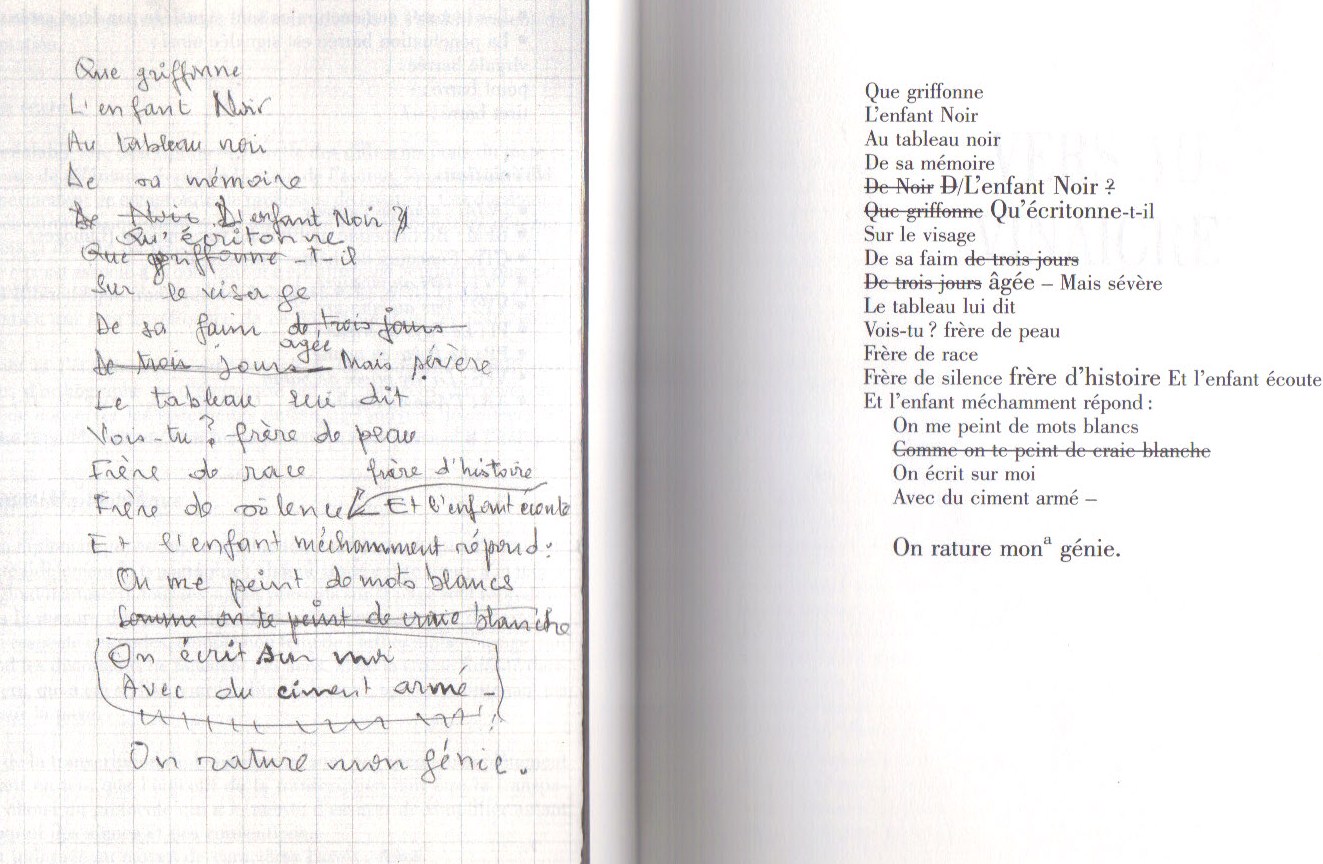 Que griffonne
L'enfant Noir
Au tableau noir
De sa mémoire
De Noir D/L'enfant Noir ?
Qu'écritonne
Que griffonne -t-il
Sur le visage
De sa faim de trois jours
âgée
De trois jours – Mais sévère
Le tableau lui dit
Vois-tu ? frère de peau
Frère de race frère d'histoire
Frère de silence Et l'enfant écoute
Et l'enfant méchamment répond :
On me peint de mots blancs
Comme on te peint de craie blanche
On écrit sur moi
Avec du ciment armé –
On rature mon génie.
Que griffonne
L'enfant Noir
Au tableau noir
De sa mémoire
De Noir D/L'enfant Noir ?
Que griffonne Qu'écritonne-t-il
Sur le visage
De sa faim de trois jours
De trois jours âgée – Mais sévère
Le tableau lui dit
Vois-tu ? frère de peau
Frère de race
Frère de silence frère d'histoire Et l'enfant écoute
Et l'enfant méchamment répond :
On me peint de mots blancs
Comme on te peint de craie blanche
On écrit sur moi
Avec du ciment armé –
On rature monª génie.